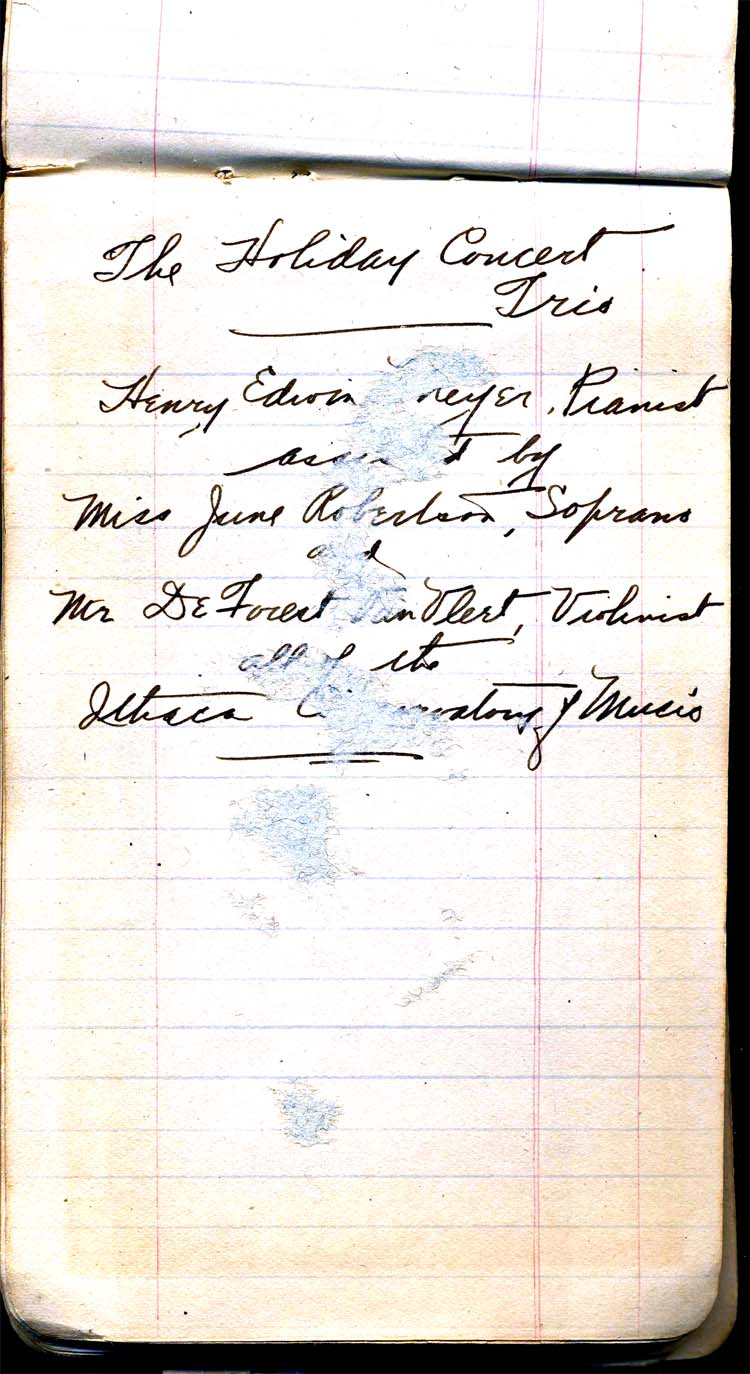 The Holiday Concert
Trio
Henry Edwin reyer, Pianist
by
Miss June Robertson, Soprano
and
Mr DeForest VanVlert, Violinist
all of the
Ithaca Conservatory of Music